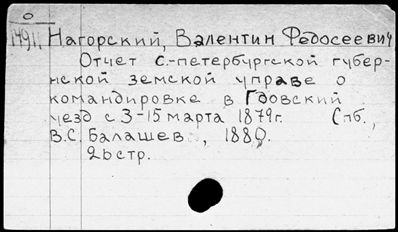 1491, Нагорский, Валентин Федосеевич
Отчет С.-петербургской губер-
нской земской управе о
командировке в Гдовский
уезд с 3-15 марта 1879г. Спб.,
В.С. Балашев, 1880.
26 стр.